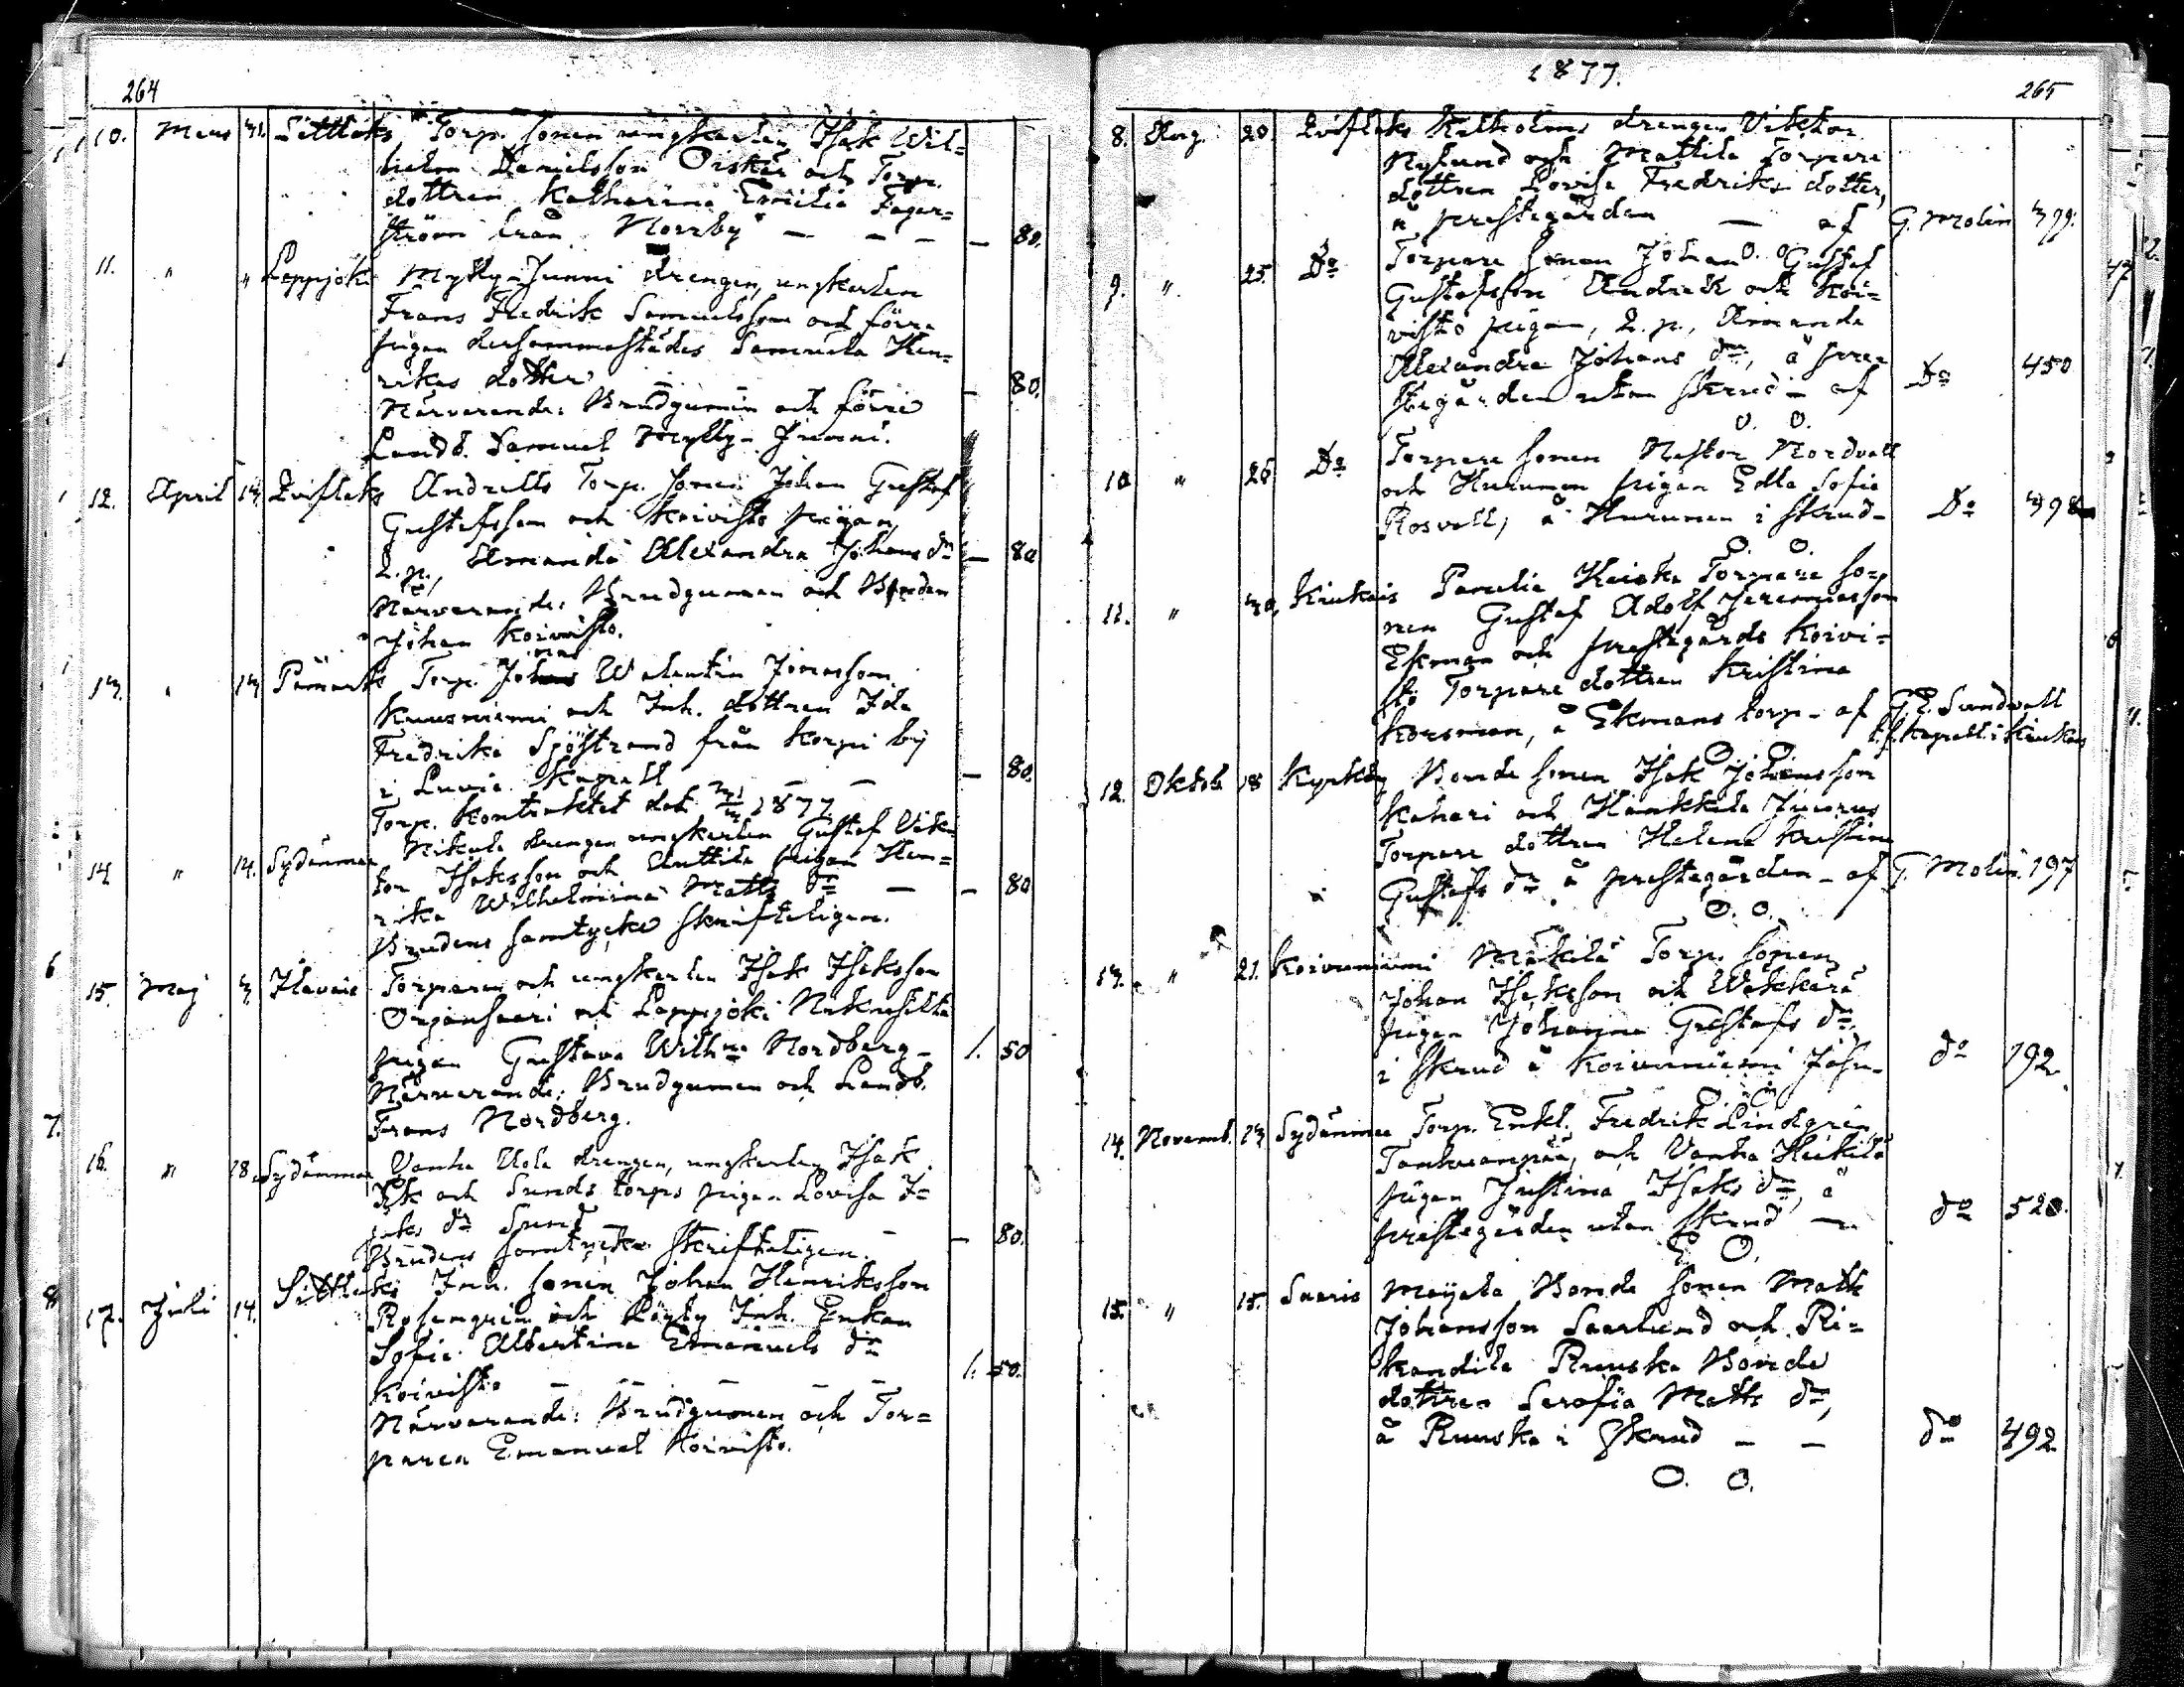 264
10. Mars 31. Sittlaks Torp. sonen ungkarlen Isak Wil=
helm Danielsson Orskär och Torp.
dottren Katharina Emilia Fager=
ström från Norrby — — — — 80.
11. " " Lappjoki Mylly-Junni drengen, ungkarlen
Frans Fredrik Samuelsson och förra
pigan dersammastädes Samuela Hen=
rikas dotter — 80.
Närvarande: Brudgummen och förre
Landb. Samuel Mylly-Junni.
12. April 13. Qviflaks Andrells Torp. sonen Johan Gustaf
Gustafsson och Koivisto pigan,
Q. p., Amanda Alexandra Johans dr — 80
Närvarande: Brudgummen och Bonden
Johan Koivisto.
13. " 13 Pämarks Torp. Jonas Walentin Jonasson
Kuusniemi och Inh. dottren Ida
Fredrika Sjöstrand från Korpi by
i Luvia Kapell — — — 80.
Torp. Kontraktet dat. 1877.
14. " 14. Sydänmaa Nikula drengen ungkarlen Gustaf Vik=
tor Isaksson och Anttila pigan Hen=
rika Wilhelmina Matts dr — — 80
Brudens samtycke skrifteligen.
15. Maj 3. Ilavais Torparen och ungkarlen Isak Isaksson
Orjansaari och Lappjoki
pigan Gustava Wilhma Nordberg — 1. 50
Närvarande: Brudgummen och Landb.
Frans Nordberg.
16. " 28. Sydänmaa Vanha Uola drengen, ungkarlen Isak
och Sunds torps pigan Lovisa I=
saks dr Sund — — — 80.
Brudens samtycke skrifteligen.
17. Juli 14. Sittlaks Inh. sonen Johan Henriksson
Rosenqvin och Inh. Enkan
Sofia Albertina Emanuels dr
Koivisto — — — — — 1. 50.
Närvarande: Brudgummen och Tor=
paren Emanuel Koivisto.
1877.
265
8. Aug. 20. Qviflaks Kalholms drengen Viktor
Nylund och Mattila Torpare
dottren Lovisa Fredriks dotter,
å prestegården — af G. Molin 379.
O. O.
9. " 25. Do Torpare sonen Johan Gustaf
Gustafsson Andrell och Koi=
visto pigan, Q. p., Amanda
Alexandra Johans dr, å pre=
stegården utan skrud — af Do 450
O. O.
10 " 26 Do Torpare sonen Nestor Nordvall
och Hurumen pigan Edla Sofia
Rosvall, å Hurumen i skrud — Do 398
O. O.
11. " 30. Kiukais Panelia Torpare so=
nen Gustaf Adolf Jeremiasson
Ekman och prestegårds Koivi=
sto Torpare dottren Kristina
Korsman, å Ekmans torp — af G. E. Sundvall
Kapell. i Kiukais
O. O.
12. Oktob 18 Kyrkoby Bonde sonen Isak Johansson
Kahari och Hankkila Juvorus
Torpare dottren Helena Kristina
Gustafs dr å prestegården — af G. Molin. 197
O. O.
13. " 21. Koivuniemi Mäkilä Torp. sonen
Johan Isaksson och Wäkkärä
pigan Johanna Gustafs dr,
i skrud å Koivuniemi do 192
14. Novemb. 13 Sydänmaa Torp. Enkl. Fredrik Lindgrén
Tankuanpää, och Vanha Heikilä
pigan Justina Isaks dr, å
prestegården utan skrud — do 520.
E. O.
15. " 15. Saaris Maijala Bonde sonen Matts
Johansson Saarlund och Ri=
kandila Ruuska Bonde
dottren Serafia Matts dr,
å Ruuska i skrud — — do 492
O. O.